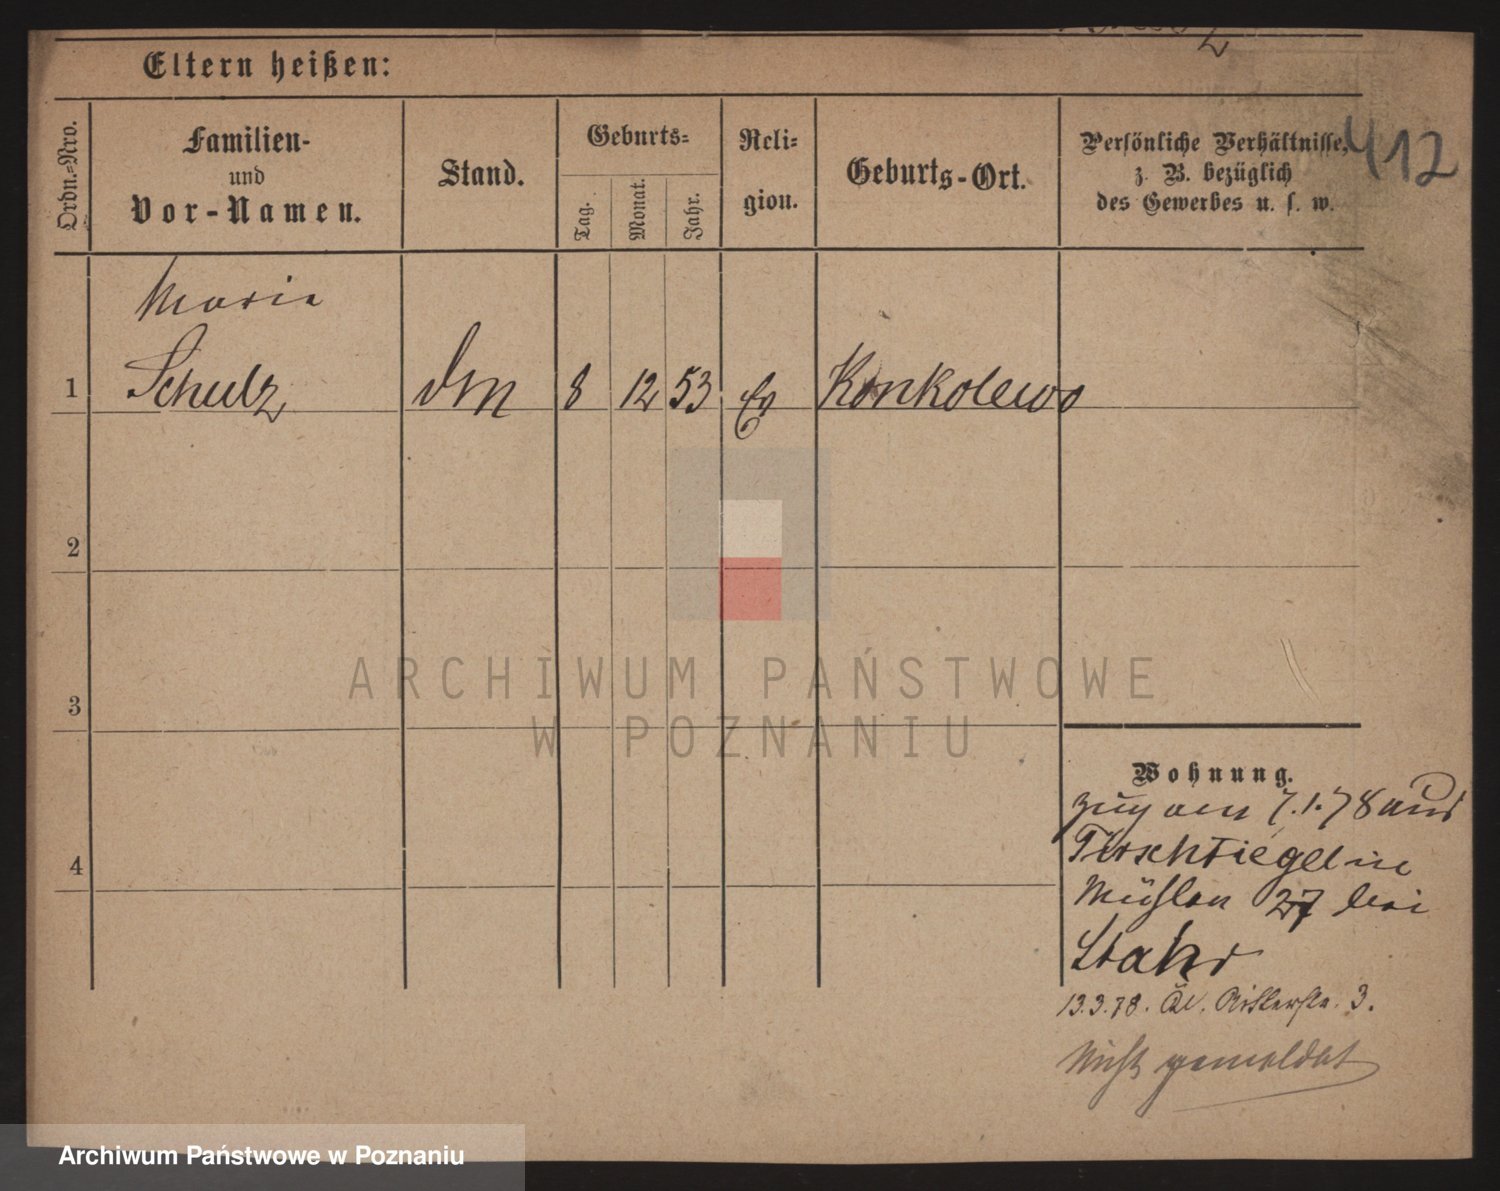 Eltern heißen:
Ordn.-Nro.
Familien-
und
Vor-Namen.
Stand.
Geburts-
Tag.
Monat.
Jahr.
Reli-
gion.
Geburts-Ort.
Persönliche Verhältnisse,
z. B. bezüglich
des Gewerbes u. s. w.
412
Marie
1 Schulz 8 12 53 Ev Konkolewo
2
3
4
Wohnung.
zug am 7.1.78 aus
Tirschtiegel in
Mühlen 27 bei
Stahr
13.3.78. Ritterstr. 3.
Nicht gemeldet
ARCHIWUM PAŃSTWOWE
W POZNANIU
Archiwum Państwowe w Poznaniu